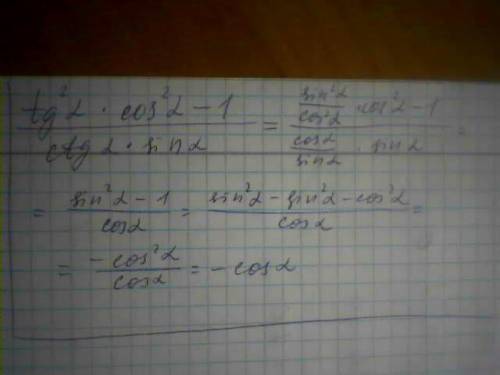 (tg²α · cos²α − 1)/(ctg α · sin α) = (sin²α/cos²α · cos²α − 1)/(cosα/sinα · sinα) =
= (sin²α − 1)/cosα = (sin²α − sin²α − cos²α)/cosα =
= −cos²α/cosα = −cosα